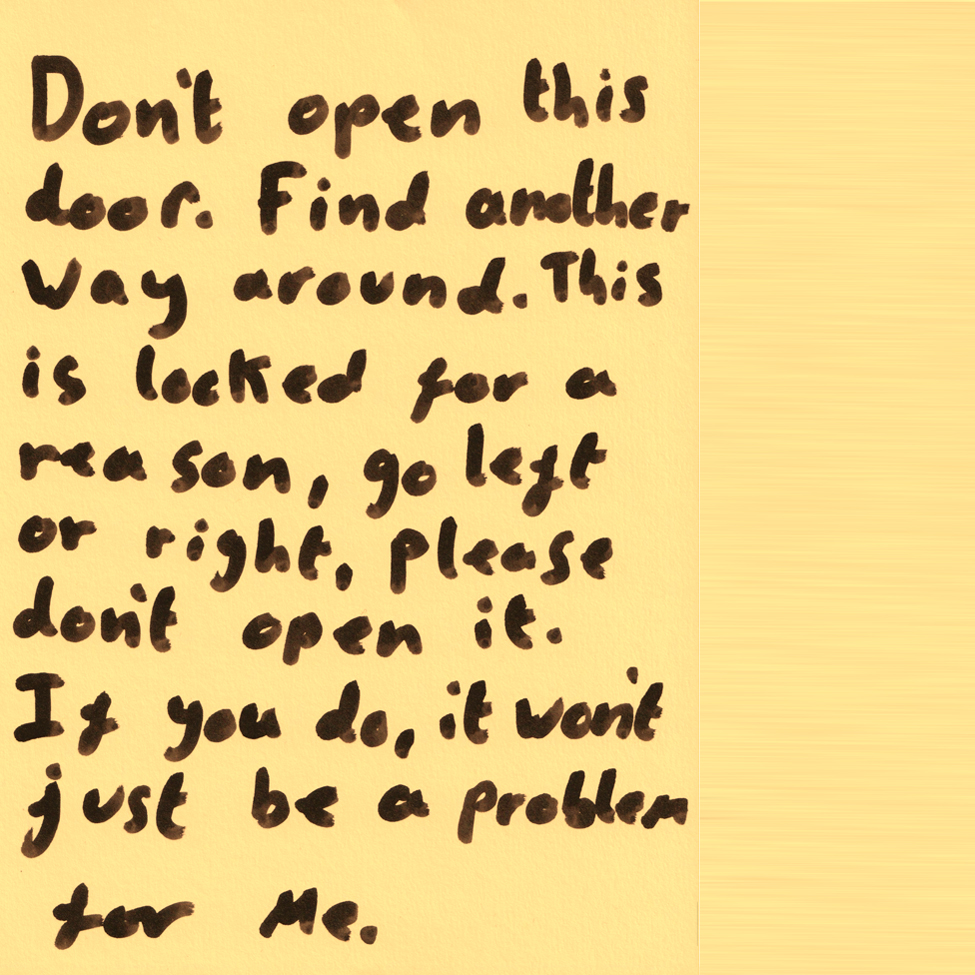 Don't open this
door. Find another
way around. This
is locked for a
reason, go left
or right, please
don't open it.
If you do, it won't
just be a problem
for Me.